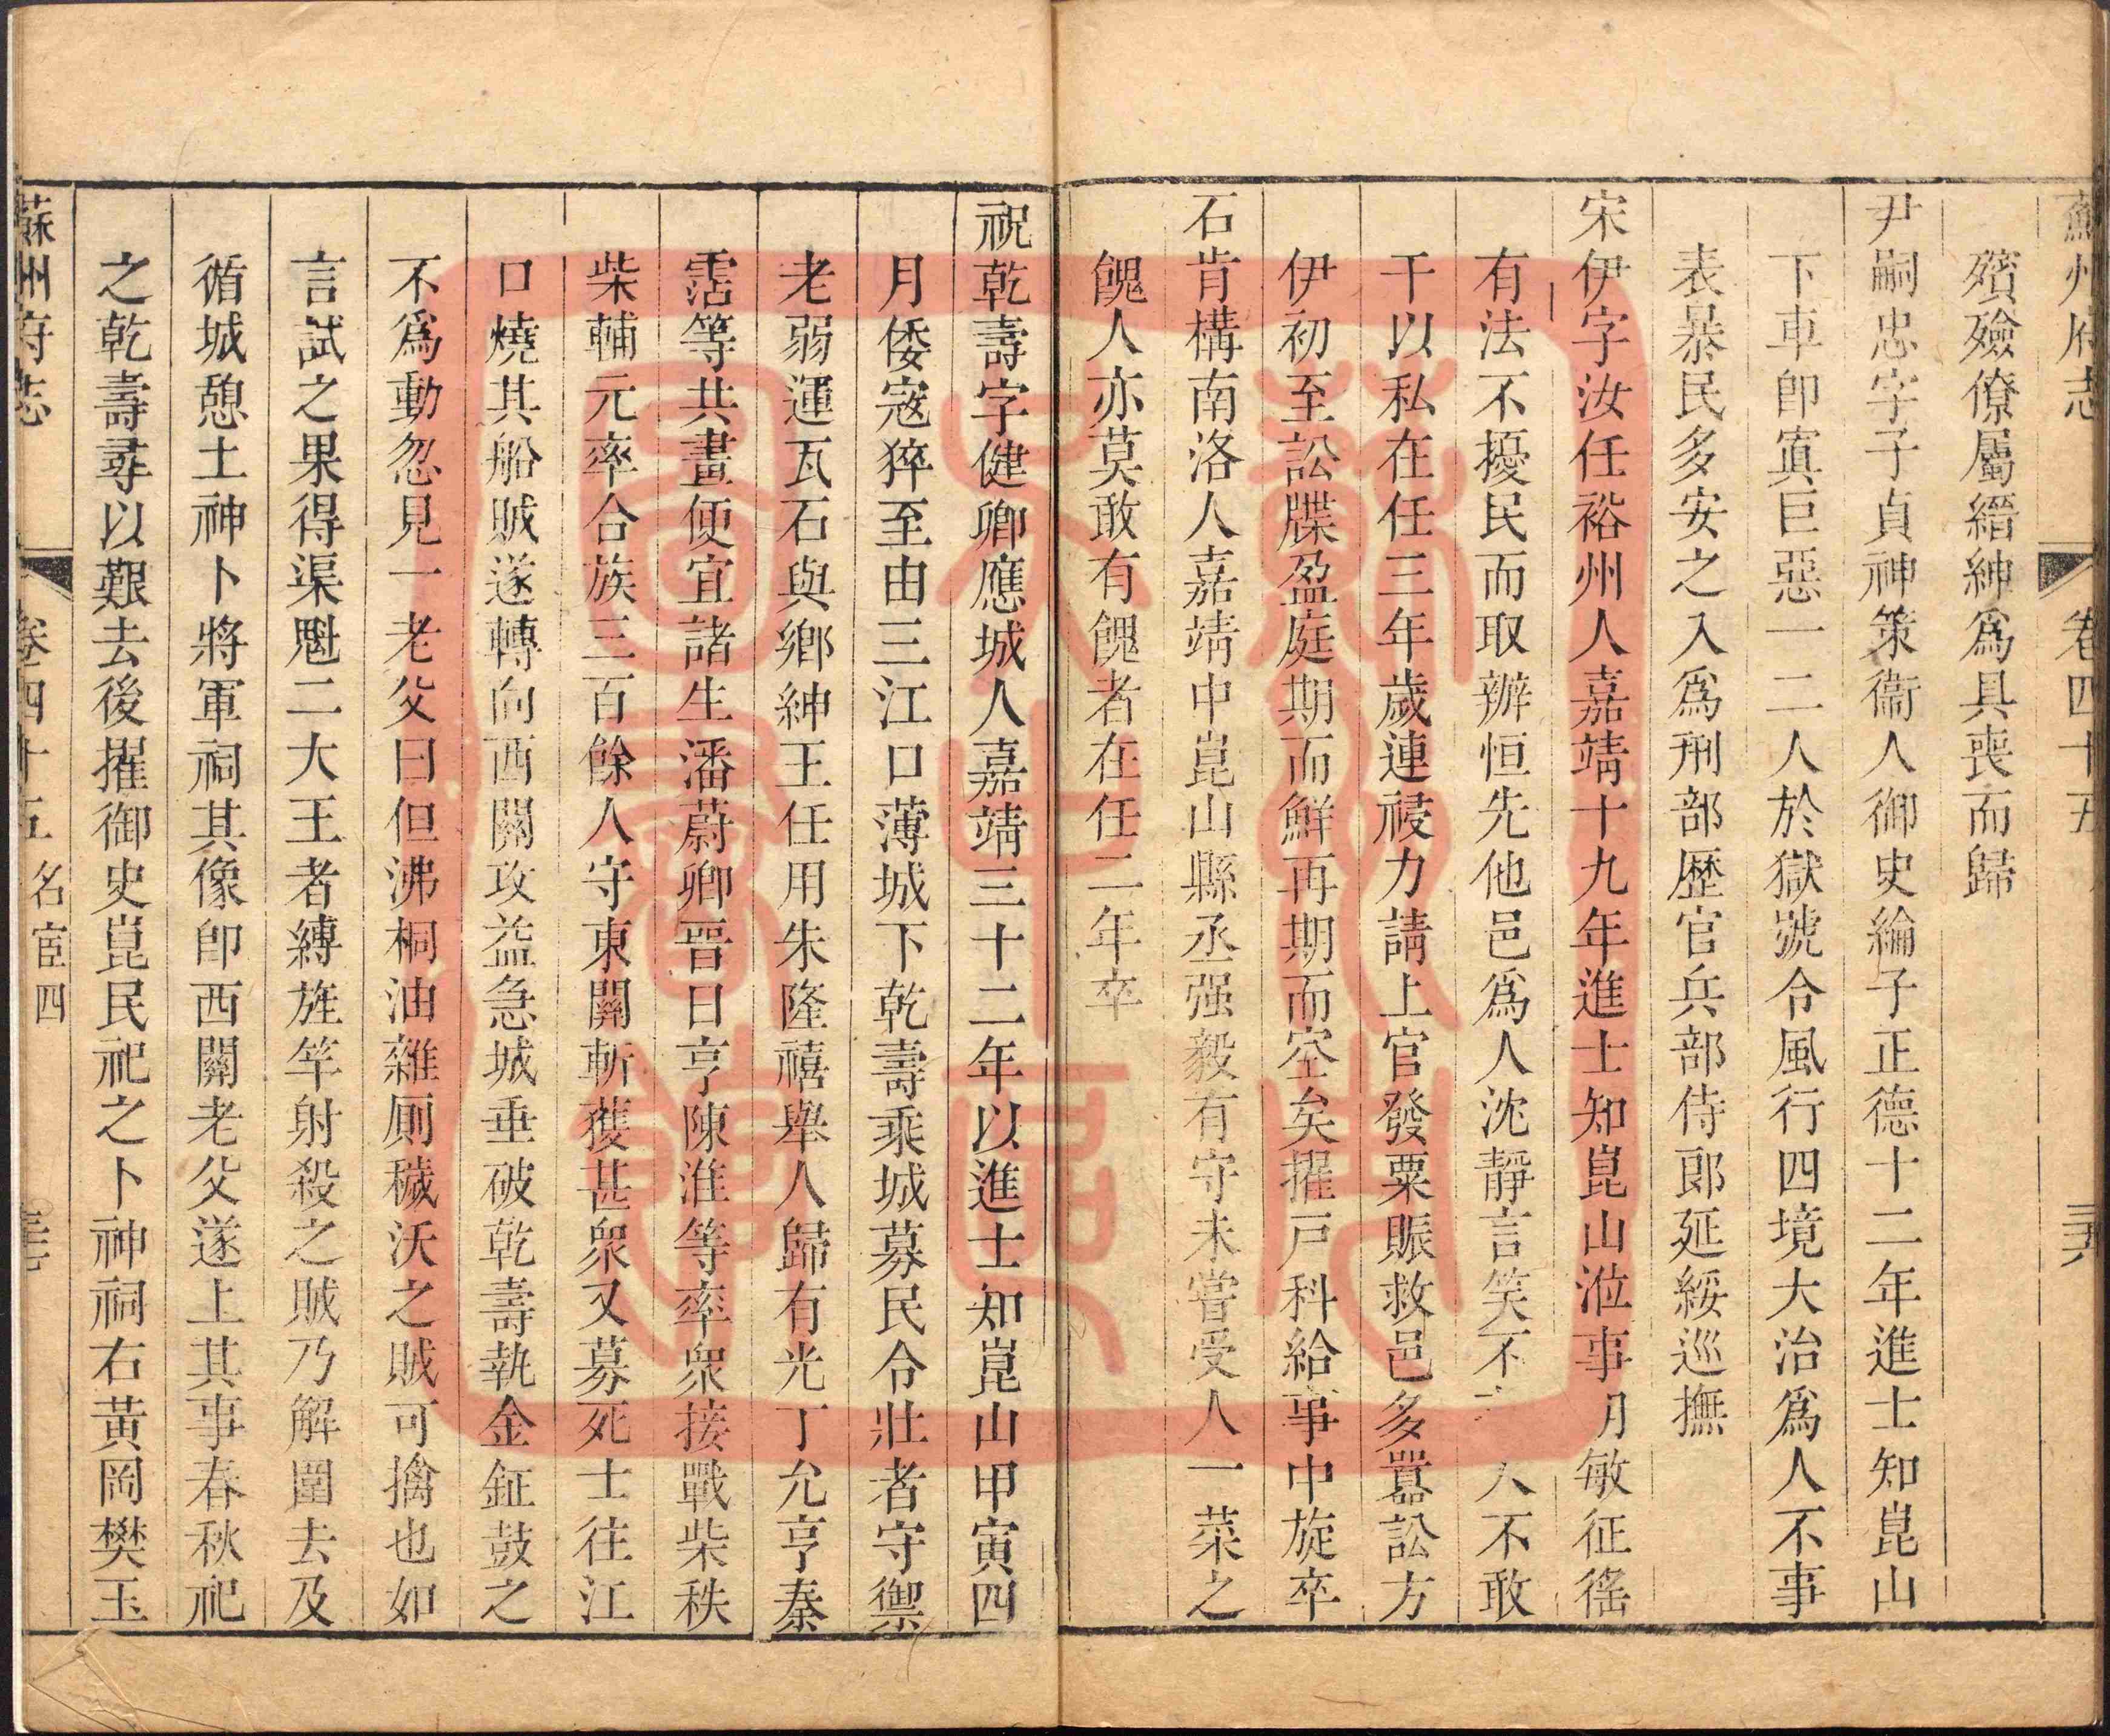 蘇州府志 卷四十五 三六
殯殮僚屬縉紳爲具喪而歸
尹嗣忠字子貞神策衞人御史綸子正德十二年進士知崑山
下車卽寘巨惡一二人於獄號令風行四境大治爲人不事
表暴民多安之入爲刑部歷官兵部侍郎延綏巡撫
宋伊字汝任裕州人嘉靖十九年進士知崑山涖事明敏征徭
有法不擾民而取辦恒先他邑爲人沈靜言笑不 人不敢
干以私在任三年歲連祲力請上官發粟賑救邑多囂訟方
伊初至訟牒盈庭期而鮮再期而空矣擢戸科給事中旋卒
石肯構南洛人嘉靖中崑山縣丞强毅有守未嘗受人一菜之
餽人亦莫敢有餽者在任二年卒
祝乾壽字健卿應城人嘉靖三十二年以進士知崑山甲寅四
月倭寇猝至由三江口薄城下乾壽乘城募民令壯者守禦
老弱運瓦石與鄉紳王任用朱隆禧舉人歸有光丁允亨秦
霑等共畫便宜諸生潘蔚卿晉曰亨陳淮等率眾接戰柴秩
柴輔元率合族三百餘人守東關斬獲甚眾又募死士往江
口燒其船賊遂轉向西關攻益急城垂破乾壽執金鉦鼓之
不爲動忽見一老父曰但沸桐油雜厠穢沃之賊可擒也如
言試之果得渠魁二大王者縛旌竿射殺之賊乃解圍去及
循城憩土神卜將軍祠其像卽西關老父遂上其事春秋祀
之乾壽尋以艱去後擢御史崑民祀之卜神祠右黃岡樊玉
蘇州府志 卷四十五 名宦四 三七